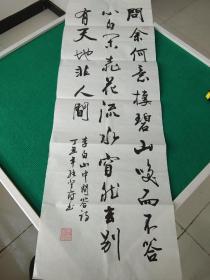 問余何意棲碧山唉而不答
心自闲桃花流水窅然去别
有天地非人間
李白山中問答詩
丁丑年